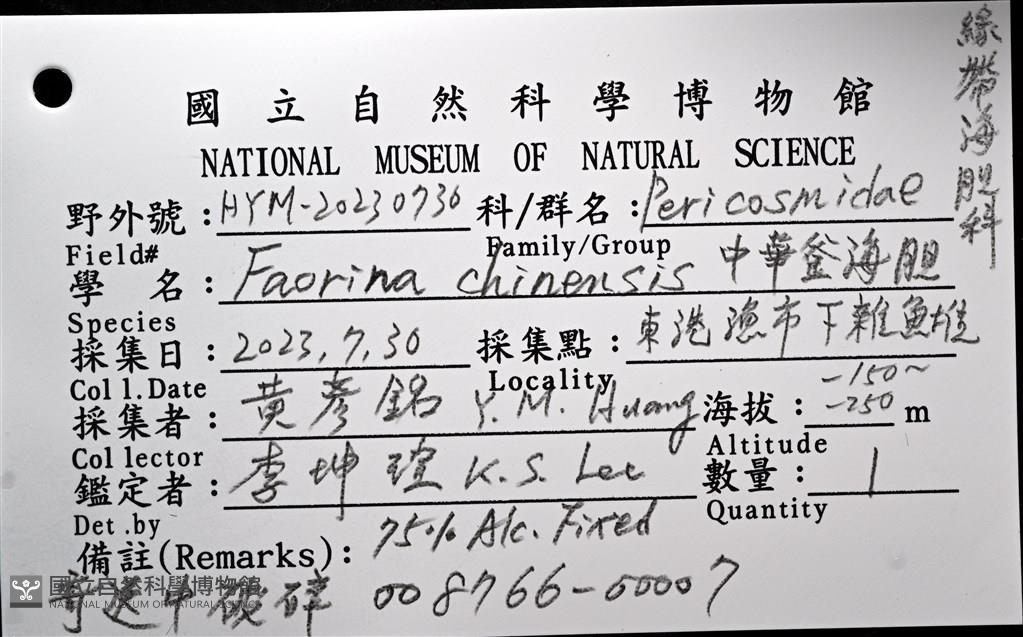 國立自然科學博物館
NATIONAL MUSEUM OF NATURAL SCIENCE
野外號：HYM-20230730 科/群名：Pericosmidae
Field# Family/Group
緣帶海胆科
學名：Faorina chinensis 中華釜海胆
Species
採集日：2023,7,30 採集點：東港漁市下雜魚堆
Coll.Date Locality
採集者：黃彥銘 Y.M. Huang 海拔：-150~-250 m
Collector Altitude
鑑定者：李坤瑄 K.S. Lee 數量：1
Det.by Quantity
備註(Remarks)：75% Alc. Fixed
寄送中破碎 008766-00007
國立自然科學博物館
NATIONAL MUSEUM OF NATURAL SCIENCE